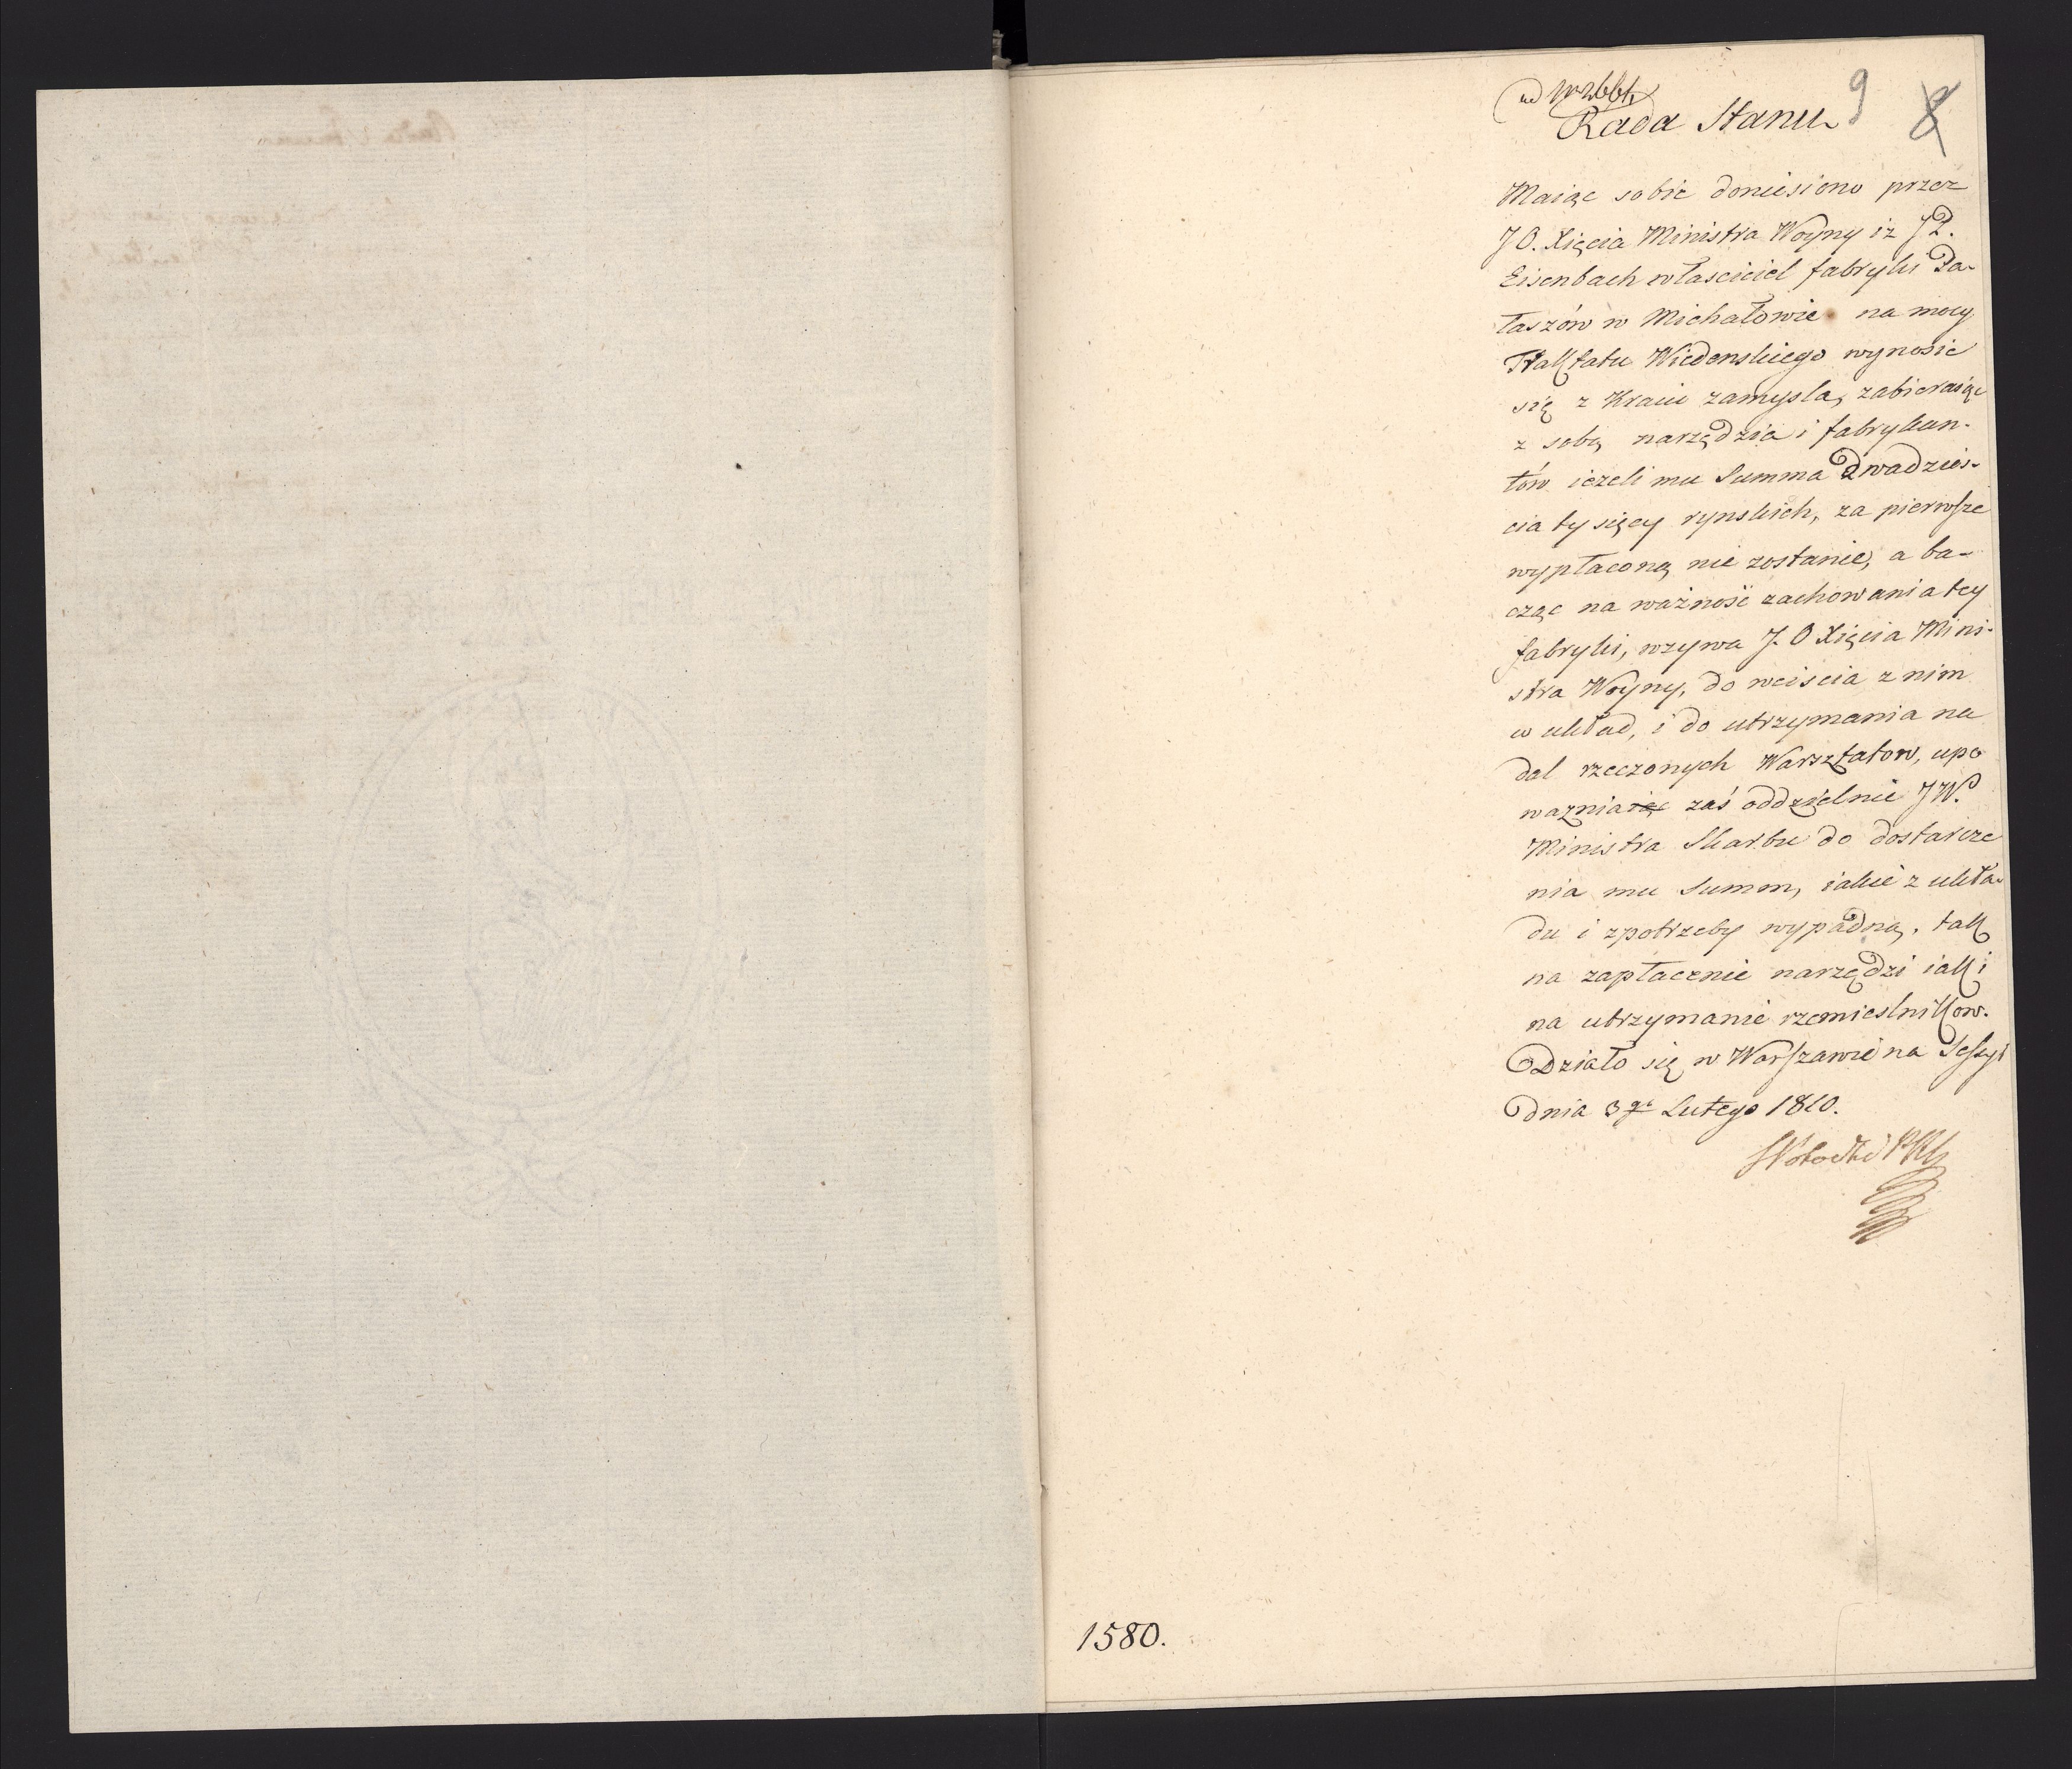 9
8
Rada Stanu
Maiąc sobie doniesiono przez
J O. Xięcia Ministra Woyny iż JP.
Eisenbach własciciel fabryki Pa-
łaszów w Michałowie na mocy
Traktatu Wiedenskiego wynosić
się z Kraiu zamysla, zabieraiąc
z sobą narzędzia i fabrykan-
tów ieżeli mu Summa Dwadzies-
cia tysięcy rynskich, za pierwsze
wypłaconą nie zostanie, a ba-
cząc na ważność zachowania tey
fabryki, wzywa J. O Xięcia Mini-
stra Woyny, do weiscia z nim
w układ, i do utrzymania na
dal rzeczonych Warsztatow, upo
ważniaiąc zaś oddzielnie JW.
Ministra Skarbu do dostarcze
nia mu Summ, iakie z ukła-
du i zpotrzeby wypadną, tak
na zapłacenie narzędzi iak i
na utrzymanie rzemieslnikow.
Działo się w Warszawie na Sessyi
Dnia 3go Lutego 1810.
1580.